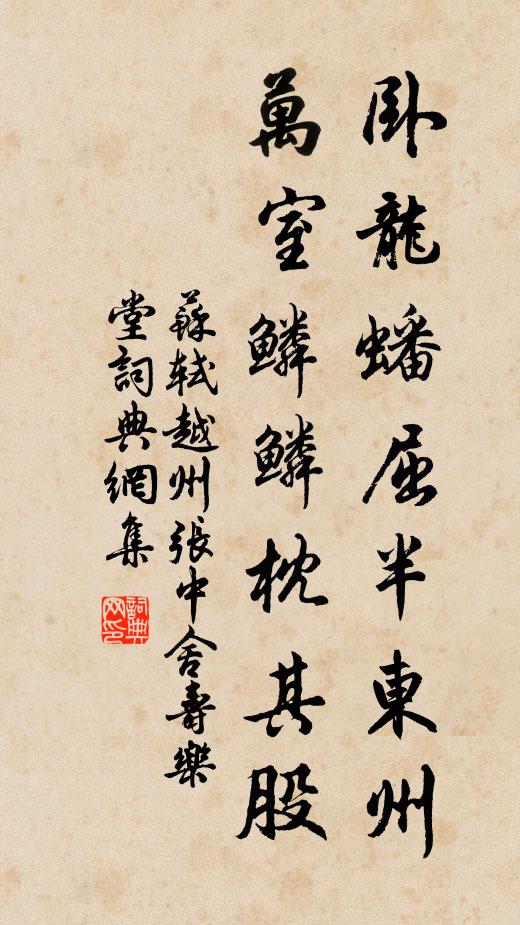 卧龍蟠屈半東州
萬室鱗鱗枕其股
蘇軾越州張中舍壽樂
堂詞典網集
詞典网印